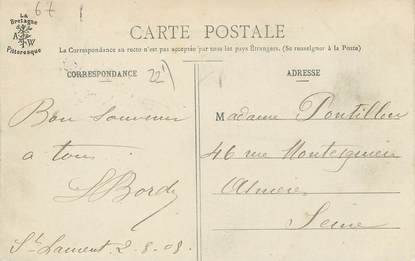 67
La
Bretagne
A W
Pittoresque
CARTE POSTALE
La Correspondance au recto n'est pas acceptée par tous les pays Étrangers. (Se renseigner à la Poste)
CORRESPONDANCE
22
ADRESSE
Bon souvenir
à tous
St Laurent 2.8.08.
Madame Pontillon
46 rue Montesquieu
Seine